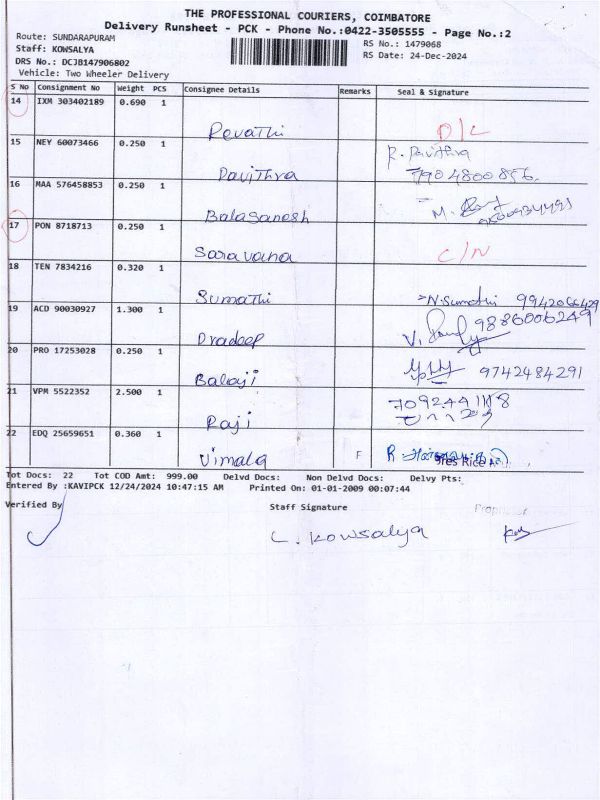 THE PROFESSIONAL COURIERS, COIMBATORE
Delivery Runsheet - PCK - Phone No.:0422-3505555 - Page No.:2
Route: SUNDARAPURAM RS No.: 1479068
Staff: KOWSALYA RS Date: 24-Dec-2024
DRS No.: DCJB147906802
Vehicle: Two Wheeler Delivery
S No Consignment No Weight PCS Consignee Details Remarks Seal & Signature
14 IXM 303402189 0.690 1
Revathi D/L
15 NEY 60073466 0.250 1 R. Pavithra
Pavithra 7904800856.
16 MAA 576458853 0.250 1
BalaSanesh M.
17 PON 8718713 0.250 1
Saravana C/N
18 TEN 7834216 0.320 1
Sumathi N.Sumathi 9942066429
19 ACD 90030927 1.300 1 9886006249
Pradeep V.
20 PRO 17253028 0.250 1
Balaji 9742484291
21 VPM 5522352 2.500 1 7092441118
Raji
22 EDQ 25659651 0.360 1
Vimala F R
Tot Docs: 22 Tot COD Amt: 999.00 Delvd Docs: Non Delvd Docs: Delvy Pts:
Entered By :KAVIPCK 12/24/2024 10:47:15 AM Printed On: 01-01-2009 00:07:44
Verified By Staff Signature
L. Kowsalya